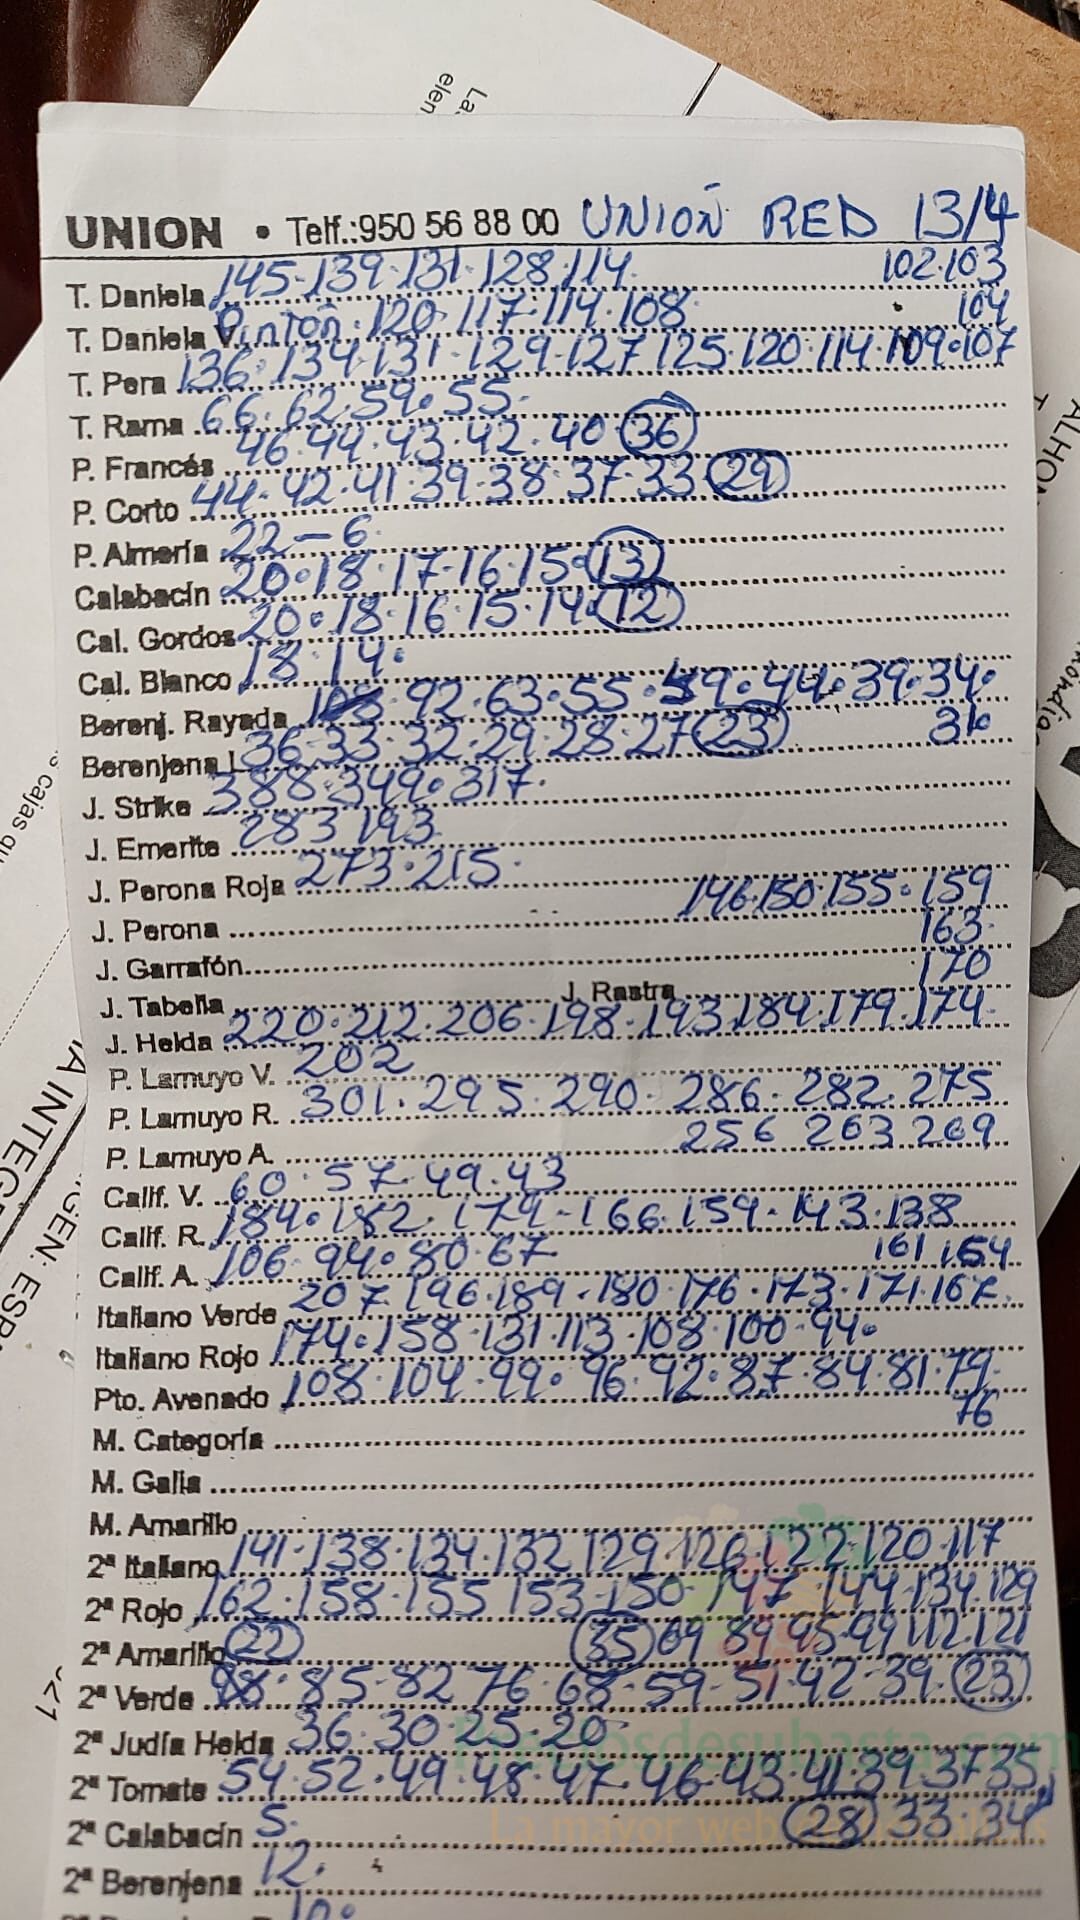 La
elen
UNION • Telf.:950 56 88 00 UNION RED 13/4
T. Daniela 145·139·131·128·114· 102·103
T. Daniela V. Pintón·120·117·114·108 104
T. Pera 136·134·131·129·127 125·120·114·109·107
T. Rama 66·62·59·55·
P. Francés 46·44·43·42·40 36
P. Corto 44·42·41·39·38·37·33 29
P. Almería 22-6
Calabacín 20·18·17·16·15·13
Cal. Gordos 20·18·16·15·14·12
Cal. Blanco 18·14·
Berenj. Rayada 92·63·55·49·44·39·34·
Berenjena L 36·33·32·29·28·27 23 31·
J. Strike 388·349·317·
J. Emerite 283 193
J. Perona Roja 273·215·
J. Perona 146·150·155·159
J. Garrafón 163
J. Tabella J. Rastra 170
J. Helda 220·212·206·198·193·184·179·174
P. Lamuyo V. 202
P. Lamuyo R. 301·295·290·286·282·275
P. Lamuyo A. 256 263 269
Calif. V. 60·57·49·43
Calif. R. 184·182·179-166·159·143·138
Calif. A. 106·94·80·67 161 154
Italiano Verde 207·196·189·180·176·173·171·167·
Italiano Rojo 174·158·131·113·108·100·94·
Pto. Avenado 108·104·99·96·92·87·84·81·79·
76
M. Categoría
M. Galia
M. Amarillo
2ª Italiano 141·138·134·132 129·126·122·120·117
2ª Rojo 162·158·155 153·150·147·144·134·129
2ª Amarillo 22 35 69 89·95·99·112·121
2ª Verde 88·85·82 76·68·59·51·42·39·23
2ª Judía Helda 36·30·25·20
2ª Tomate 54·52·49·48·47·46·43·41·39·37·35
2ª Calabacín 5· 28 33·34
2ª Berenjena 12·
10·
Preciosdesubasta.com
La mayor web de
s cajas qu
ALHON